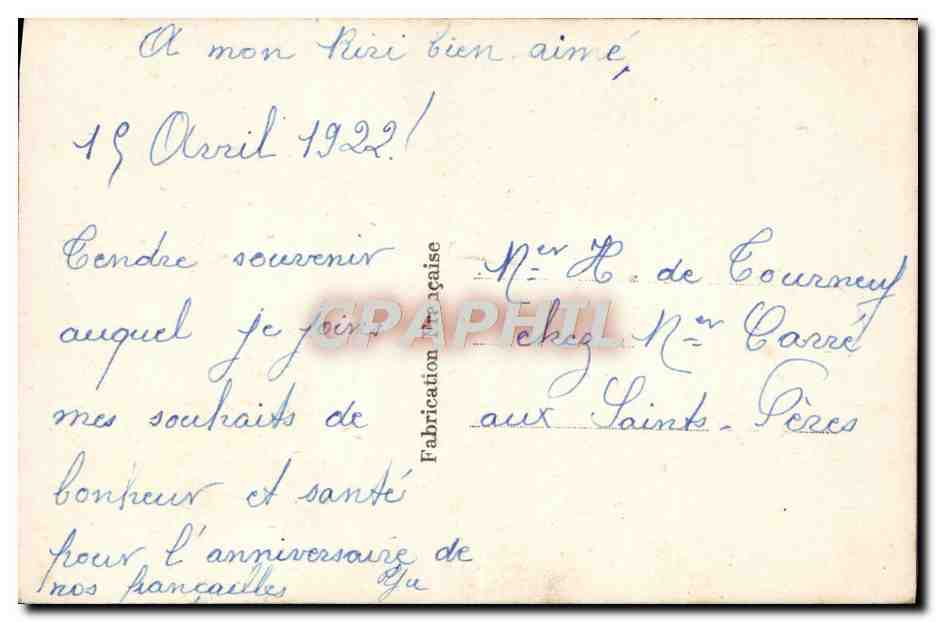 A mon Riri bien aimé,
15 Avril 1922!
Tendre souvenir
auquel je joins
mes souhaits de
bonheur et santé
pour l'anniversaire de
nos françailles
Fabrication Française
Mer H. de Tourneuf
chez Mer Carré
aux Saints-Pères
CPAPHIL